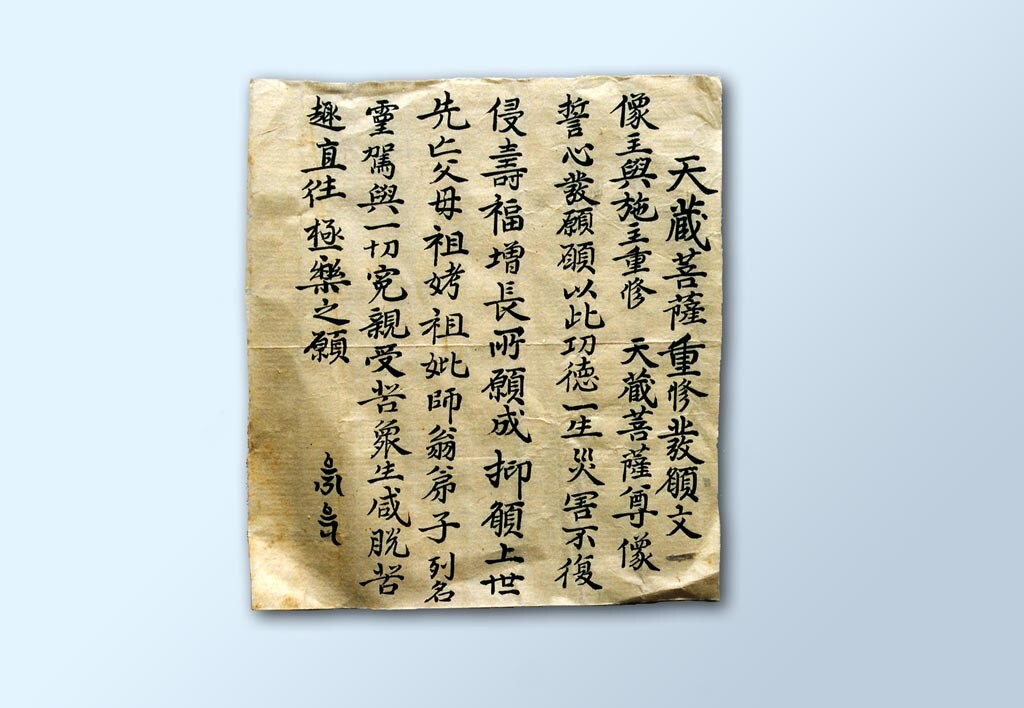 天藏菩薩重修發願文
像主與施主重修 天藏菩薩尊像
誓心發願願以此功德一生災害不復
侵壽福增長所願成抑願上世
先亡父母祖考祖妣師翁弟子列名
靈駕與一切寃親受苦衆生咸脫苦
趣直往極樂之願